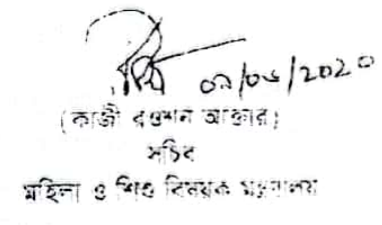 ০৯/০৬/2020
(কাজী রওশন আক্তার)
সচিব
মহিলা ও শিশু বিষয়ক মন্ত্রণালয়